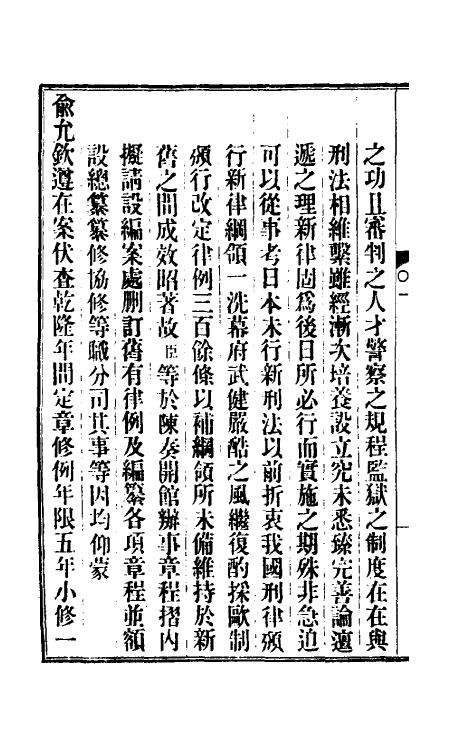 之功且審判之人才警察之規程監獄之制度在在與
刑法相維繫雖經漸次培養設立究未悉臻完善論遞
遞之理新律固爲後日所必行而實施之期殊非急迫
可以從事考日本未行新刑法以前折衷我國刑律頒
行新律綱領一洗幕府武健嚴酷之風繼復酌採歐制
頒行改定律例三百餘條以補綱領所未備維持於新
舊之間成效昭著故臣等於陳奏開館辦事章程摺內
擬請設編案處删訂舊有律例及編纂各項章程並額
設總纂纂修協修等職分司其事等因均仰蒙
俞允欽遵在案伏查乾隆年間定章修例年限五年小修一